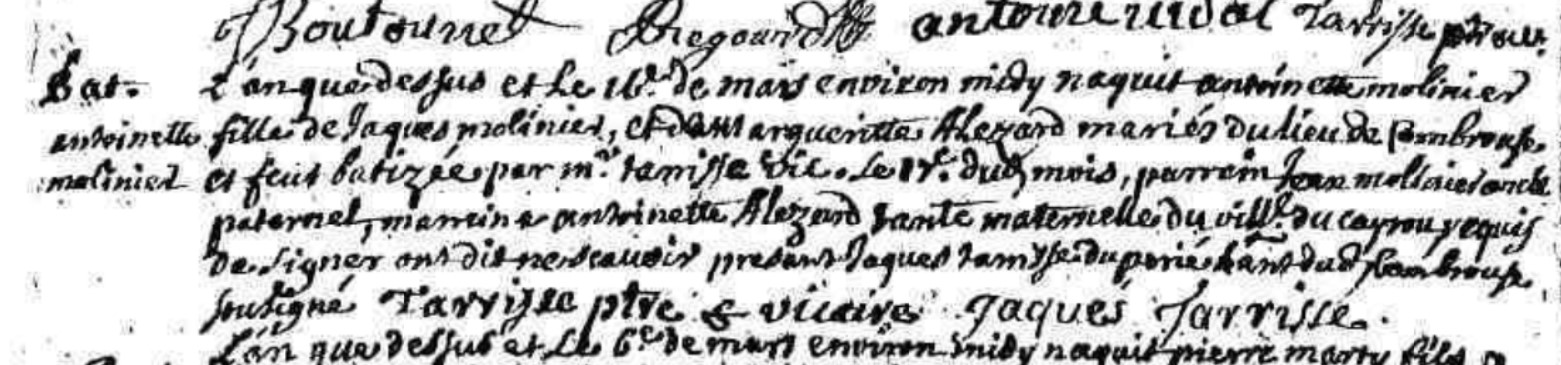 Boutounet Regourd antoine vidal Tarrisse ptre vic.
Bat. L'an que dessus et le 16e. de mars environ midy naquit antoinette molinier
antoinette fille de Jaques molinier, et de marguerite Alezard mariés du lieu de
molinier et feut batizée par mr. tarrisse vic. le 17e. dud mois, parrein Jean molinier oncle
paternel, marreine antoinette Alezard tante maternelle du vill. du cayrou requis
de signer ont dit ne scavoir presant Jaques tarrisse du perié hant dud
sousigné Tarrisse ptre & vicaire Jaques Tarrisse.
L'an que dessus et le 6e. de mars environ midy naquit pierre marty fils